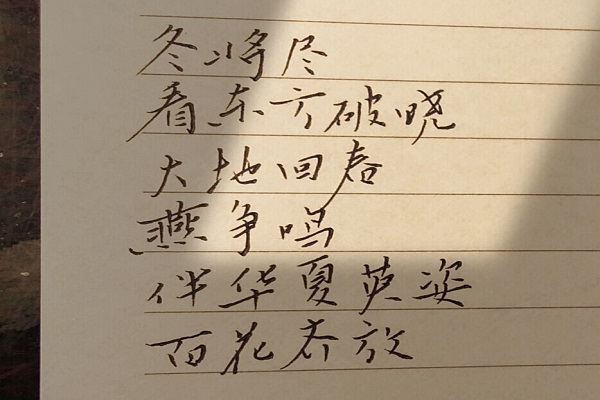 冬将尽
看东方破晓
大地回春
燕争鸣
伴华夏英姿
百花齐放